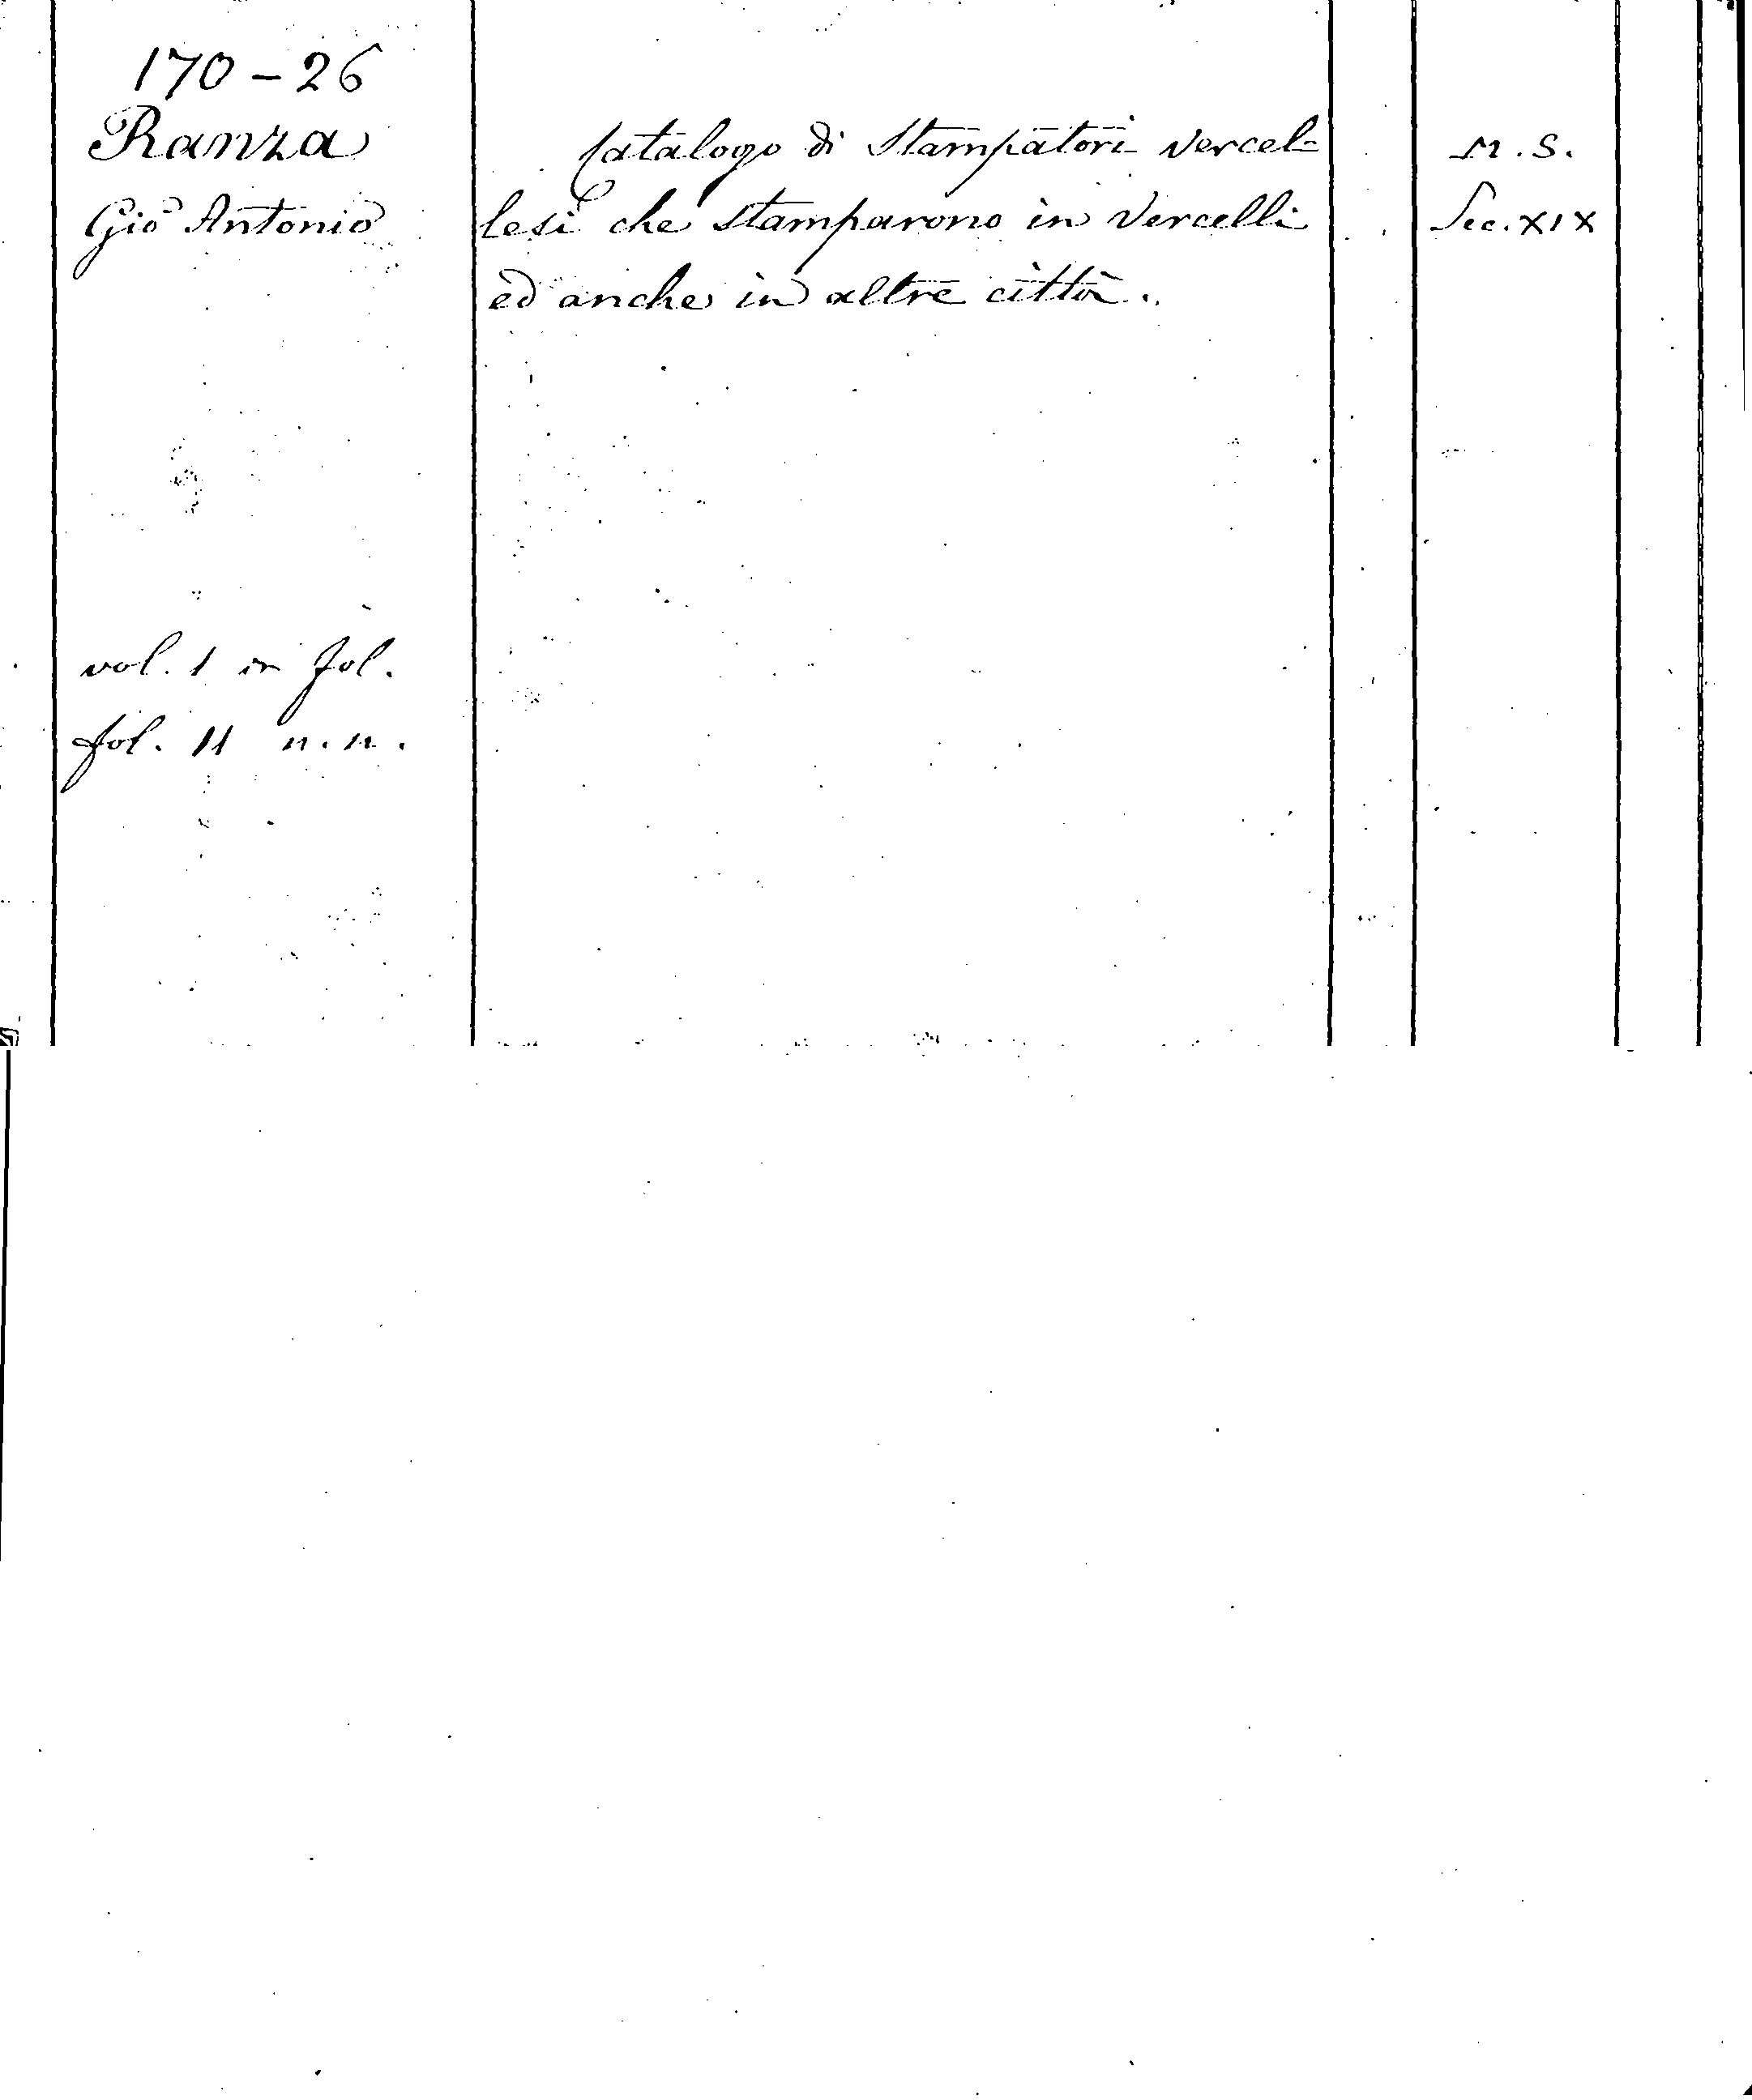 170 - 26
Ranza
Gio Antonio
Catalogo di Stampatori Vercel=
lesi che stamparono in Vercelli
ed anche in altre città.
M. S.
Sec. XIX
vol. 1 in fol.
fol. 11 n. n.